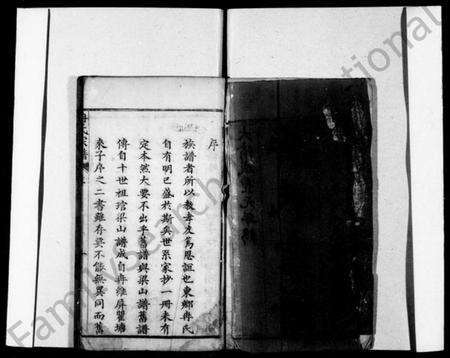 序
族譜者所以教孝友篤恩誼也東鄉冉氏
自有明已盛於斯矣世系家抄一冊未有
定本然大要不出乎舊譜與梁山譜舊譜
傳自十世祖琯梁山譜成自冉維屏瞿塘
來子序之二書雖存要不能無異同而舊
FamilySearch International